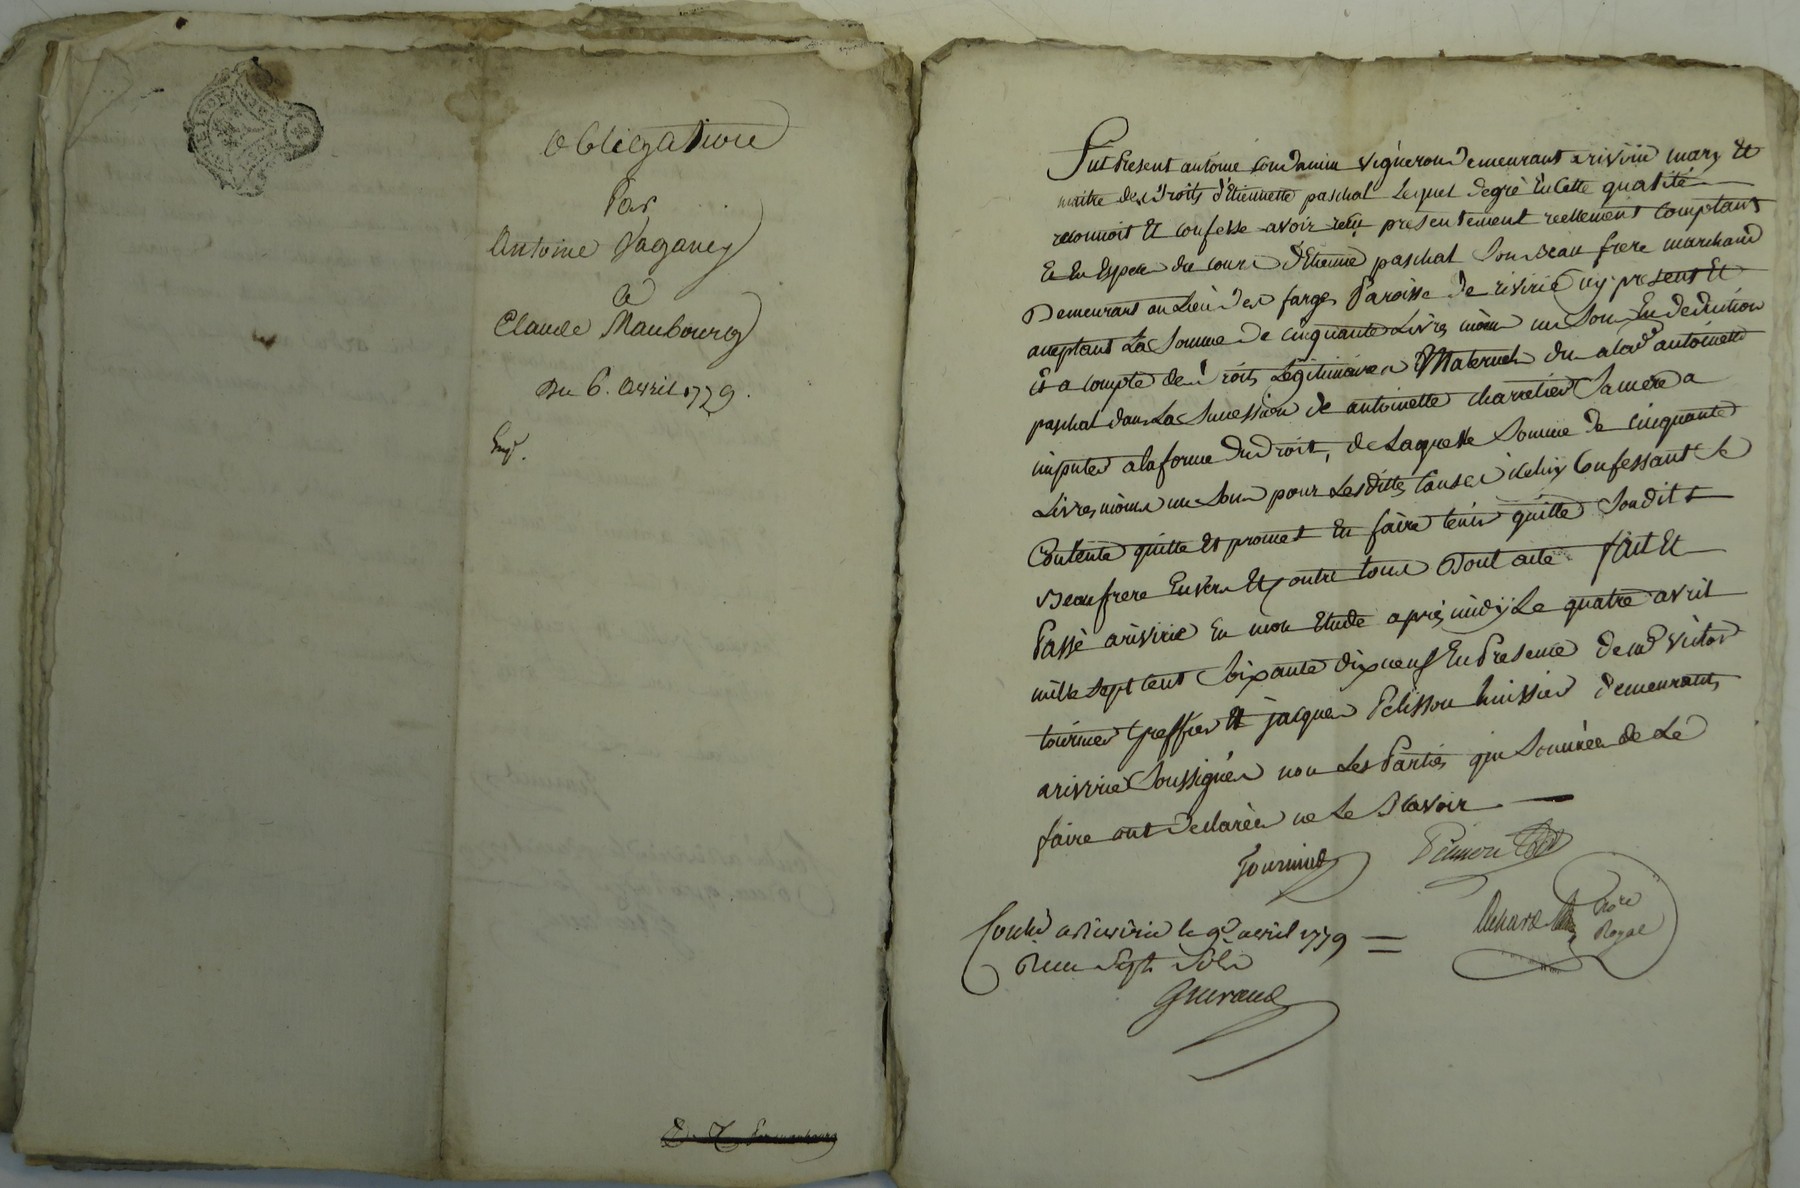 obligation
Par
Antoine Vaganey
a
Claude Maubourg
Du 6. Avril 1779.
Exp.
Fut Present antoine Condamin Vigneron Demeurant a riverie mary Et
maitre des Droits d'Etiennette paschal Lequel degré En Cette qualité
reconnoit Et confesse avoir reçu presentement reellement Comptant
Et En Espece du cours d'Etienne paschal Son Beau frere marchand
Demeurant au Lieu des farges Paroisse De riverie icy present Et
acceptant La Somme De cinquante Livres moins un Sou En deduction
Et a compte des Droits Legitimaires Maternels du a lad antoinette
paschal dans La Succession de antoinette charretier Sa mere a
imputer a la forme du Droit, de Laquelle Somme De cinquante
Livres moins un Sou pour Les dittes Causes iceluy Confessant Se
Contente quitte Et promet En faire tenir quitte Son dit
Beaufrere Envers Et contre tous Dont acte fait Et
Passé a riverie En mon Etude après midy Le quatre avril
mille Sept Cent Soixante dix neuf En Presence de victor
tournier Greffier Et jacques Pelisson huissier demeurants
a riverie Soussignés non Les Parties qui Sommées de Le
faire ont declarées ne Le Sçavoir
Tournier Pelisson
Conlé a Riverie le 9e avril 1779
Reçu Sept Sols
Nore
Royal